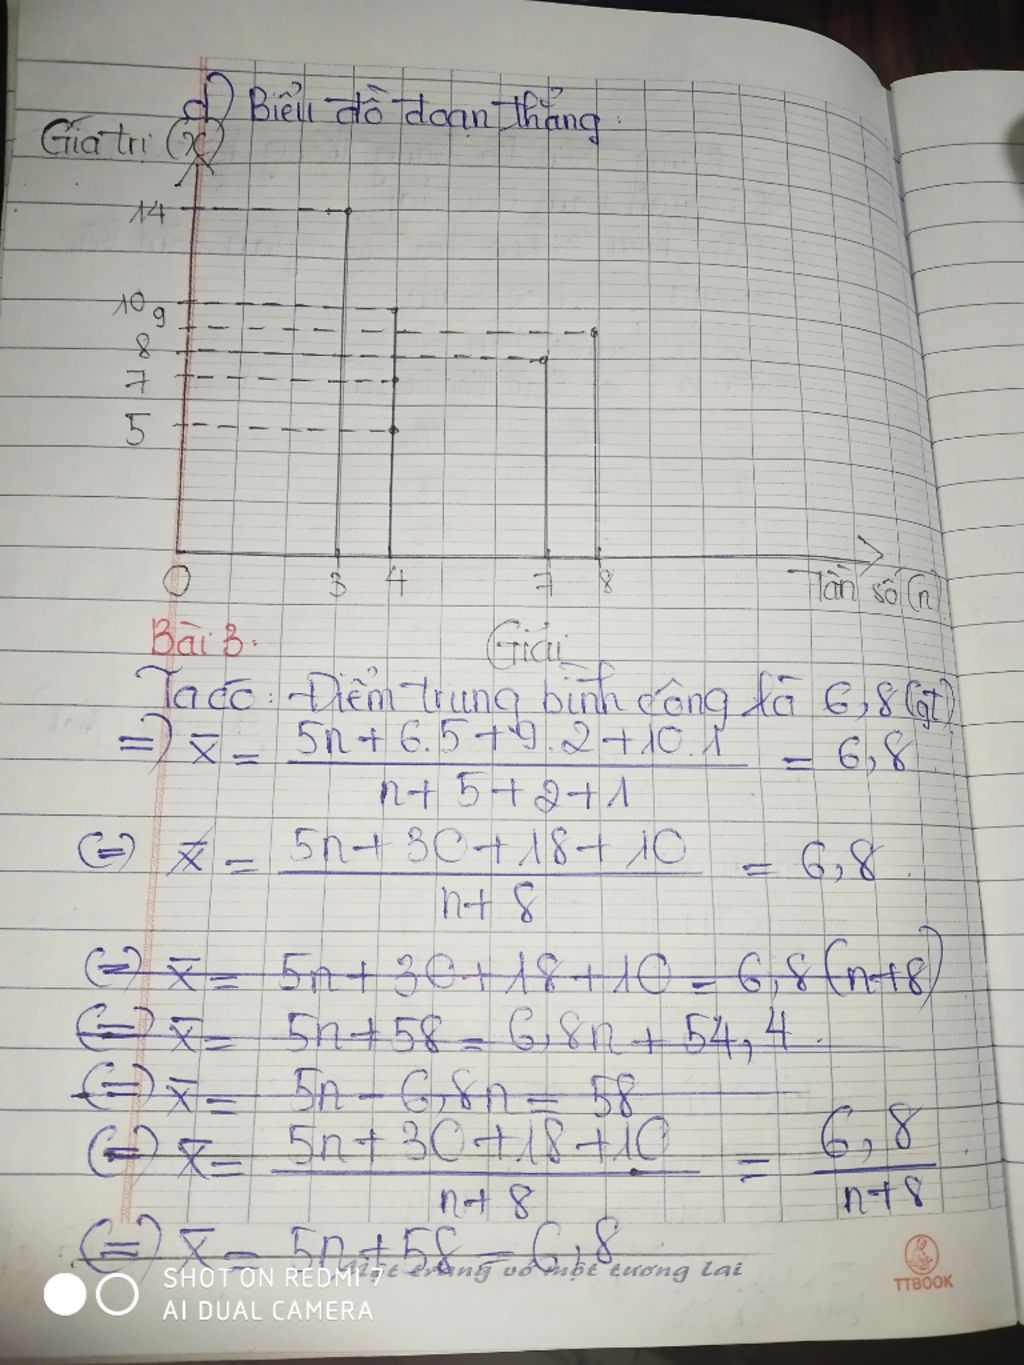 d) Biểu đồ đoạn thẳng.
Giá trị (x)
14
10
9
8
7
5
0 3 4 7 8 Tần số (n)
Bài 3. Giải
Ta có: Điểm trung bình cộng là 6,8 (gt)
=) x̄ = (5n + 6.5 + 9.2 + 10.1) / (n + 5 + 2 + 1) = 6,8
(=) x̄ = (5n + 30 + 18 + 10) / (n + 8) = 6,8.
(=) x̄ = 5n + 30 + 18 + 10 = 6,8 (n+8)
(=) x̄ = 5n + 58 = 6,8n + 54,4.
(=) x̄ = 5n - 6,8n = 58
(=) x̄ = (5n + 30 + 18 + 10) / (n + 8) = 6,8 / (n + 8).
(=) x̄ = 5n + 58 = 6,8
Một trang vở một tương lai
TTBOOK
SHOT ON REDMI 7
AI DUAL CAMERA